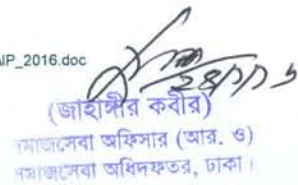 IP_2016.doc
(জাহাঙ্গীর কবীর)
সমাজসেবা অফিসার (আর. ও)
সমাজসেবা অধিদফতর, ঢাকা।